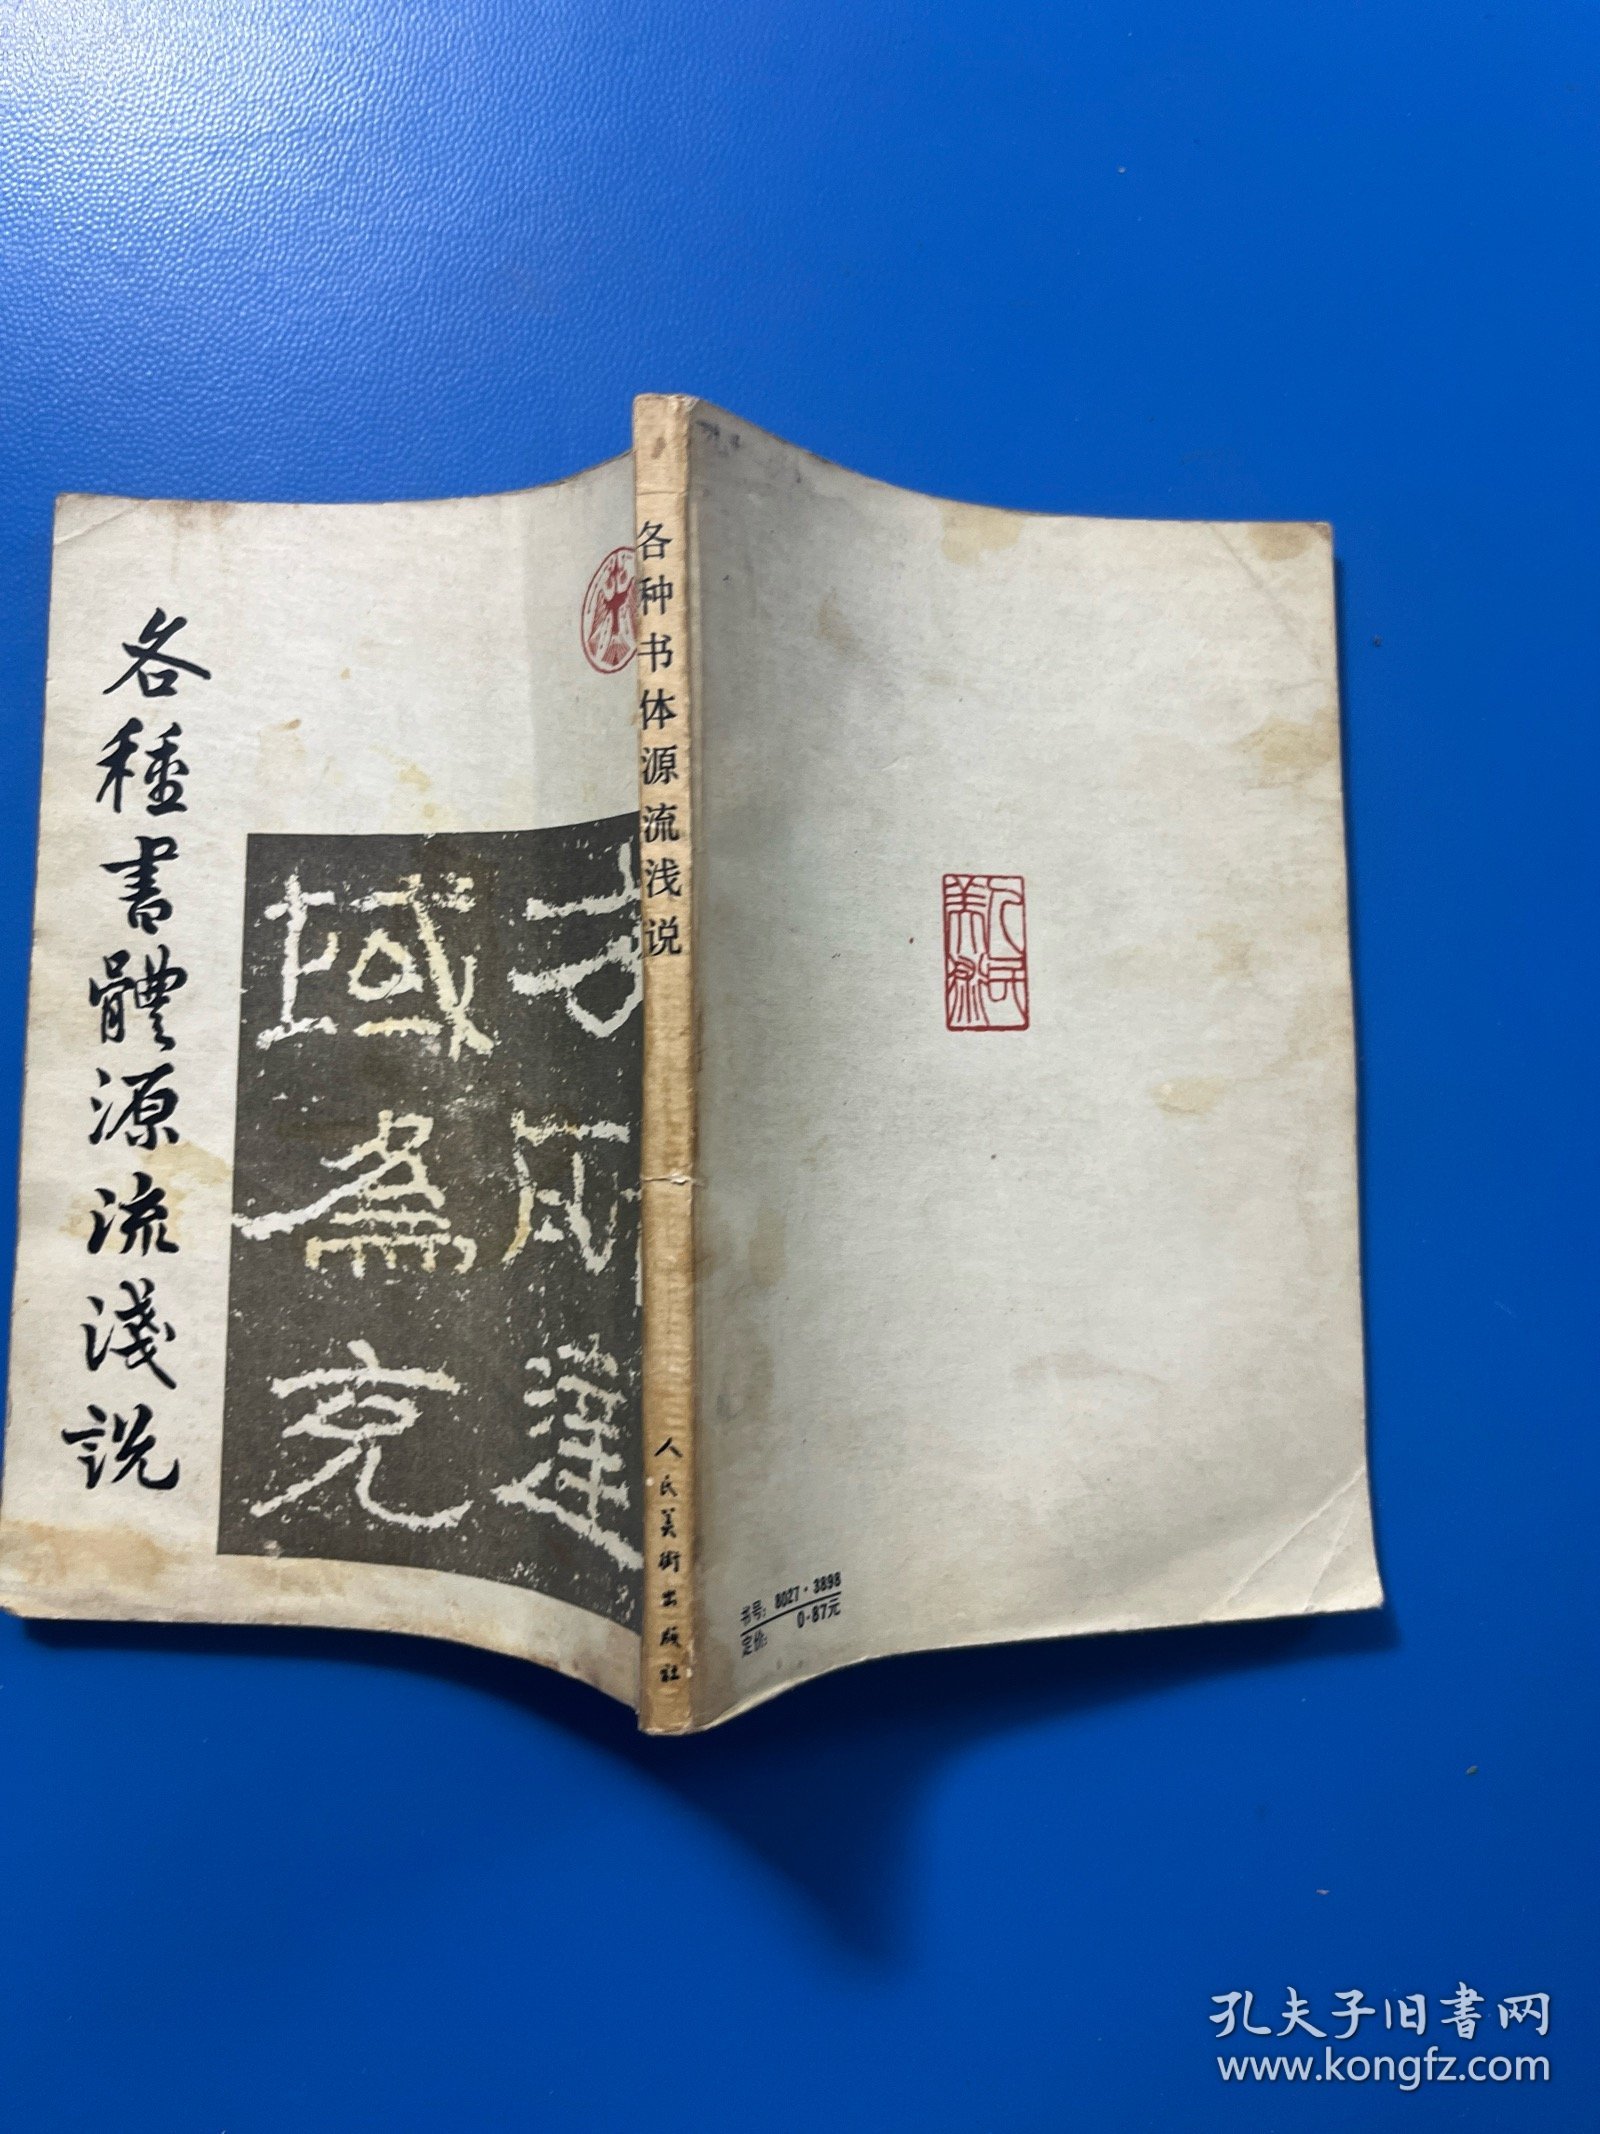 各種書體源流淺説
域爲充
各种书体源流浅说
人民美術出版社
人民美術
书号：8027·3898
定价：0·87元
孔夫子旧书网
www.kongfz.com